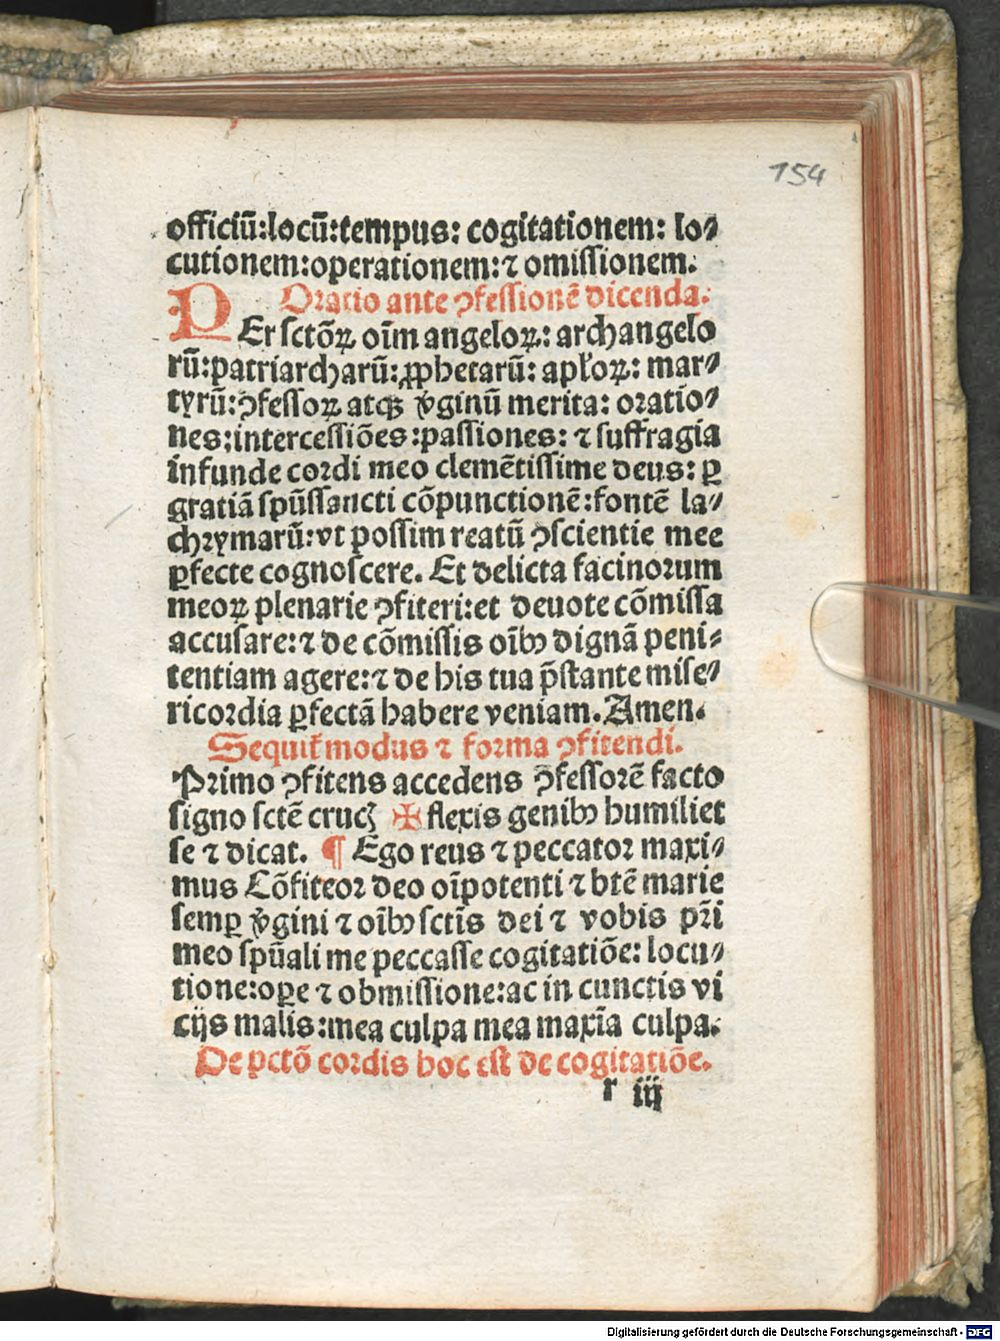 154
officiū:locū:tempus: cogitationem: lo⸗
cutionem:operationem:⁊ omissionem.
Oratio ante ꝯfessionē dicenda.
PEr sctōꝝ oīm angeloꝝ: archangelo
rū:patriarcharū:ꝓphetarū: apłoꝝ: mar⸗
tyrū:ꝯfessoꝝ atqꝫ v̄ginū merita: oratio⸗
nes:intercessiōes:passiones: ⁊ suffragia
infunde cordi meo clemētissime deus: ꝑ
gratiā spūssancti cōpunctionē:fontē la⸗
chrymarū:vt possim reatū ꝯscientie mee
ꝑfecte cognoscere. Et delicta facinorum
meoꝝ plenarie ꝯfiteri:et deuote cōmissa
accusare:⁊ de cōmissis oībꝰ dignā peni⸗
tentiam agere:⁊ de his tua p̄stante mise⸗
ricordia ꝑfectā habere veniam. Amen.
Sequit᷑ modus ⁊ forma ꝯfitendi.
Primo ꝯfitens accedens ꝯfessorē facto
signo sctē crucꝭ ✠ flexis genibꝰ humiliet
se ⁊ dicat. ¶ Ego reus ⁊ peccator maxi⸗
mus Cōfiteor deo oīpotenti ⁊ btē marie
semꝑ v̄gini ⁊ oībꝰ sctīs dei ⁊ vobis pr̄i
meo spūali me peccasse cogitatiōe: locu⸗
tione:oꝑe ⁊ obmissione:ac in cunctis vi
cijs malis:mea culpa mea maxīa culpa.
De pctō cordis hoc est de cogitatiōe.
r iij
Digitalisierung gefördert durch die Deutsche Forschungsgemeinschaft - DFG